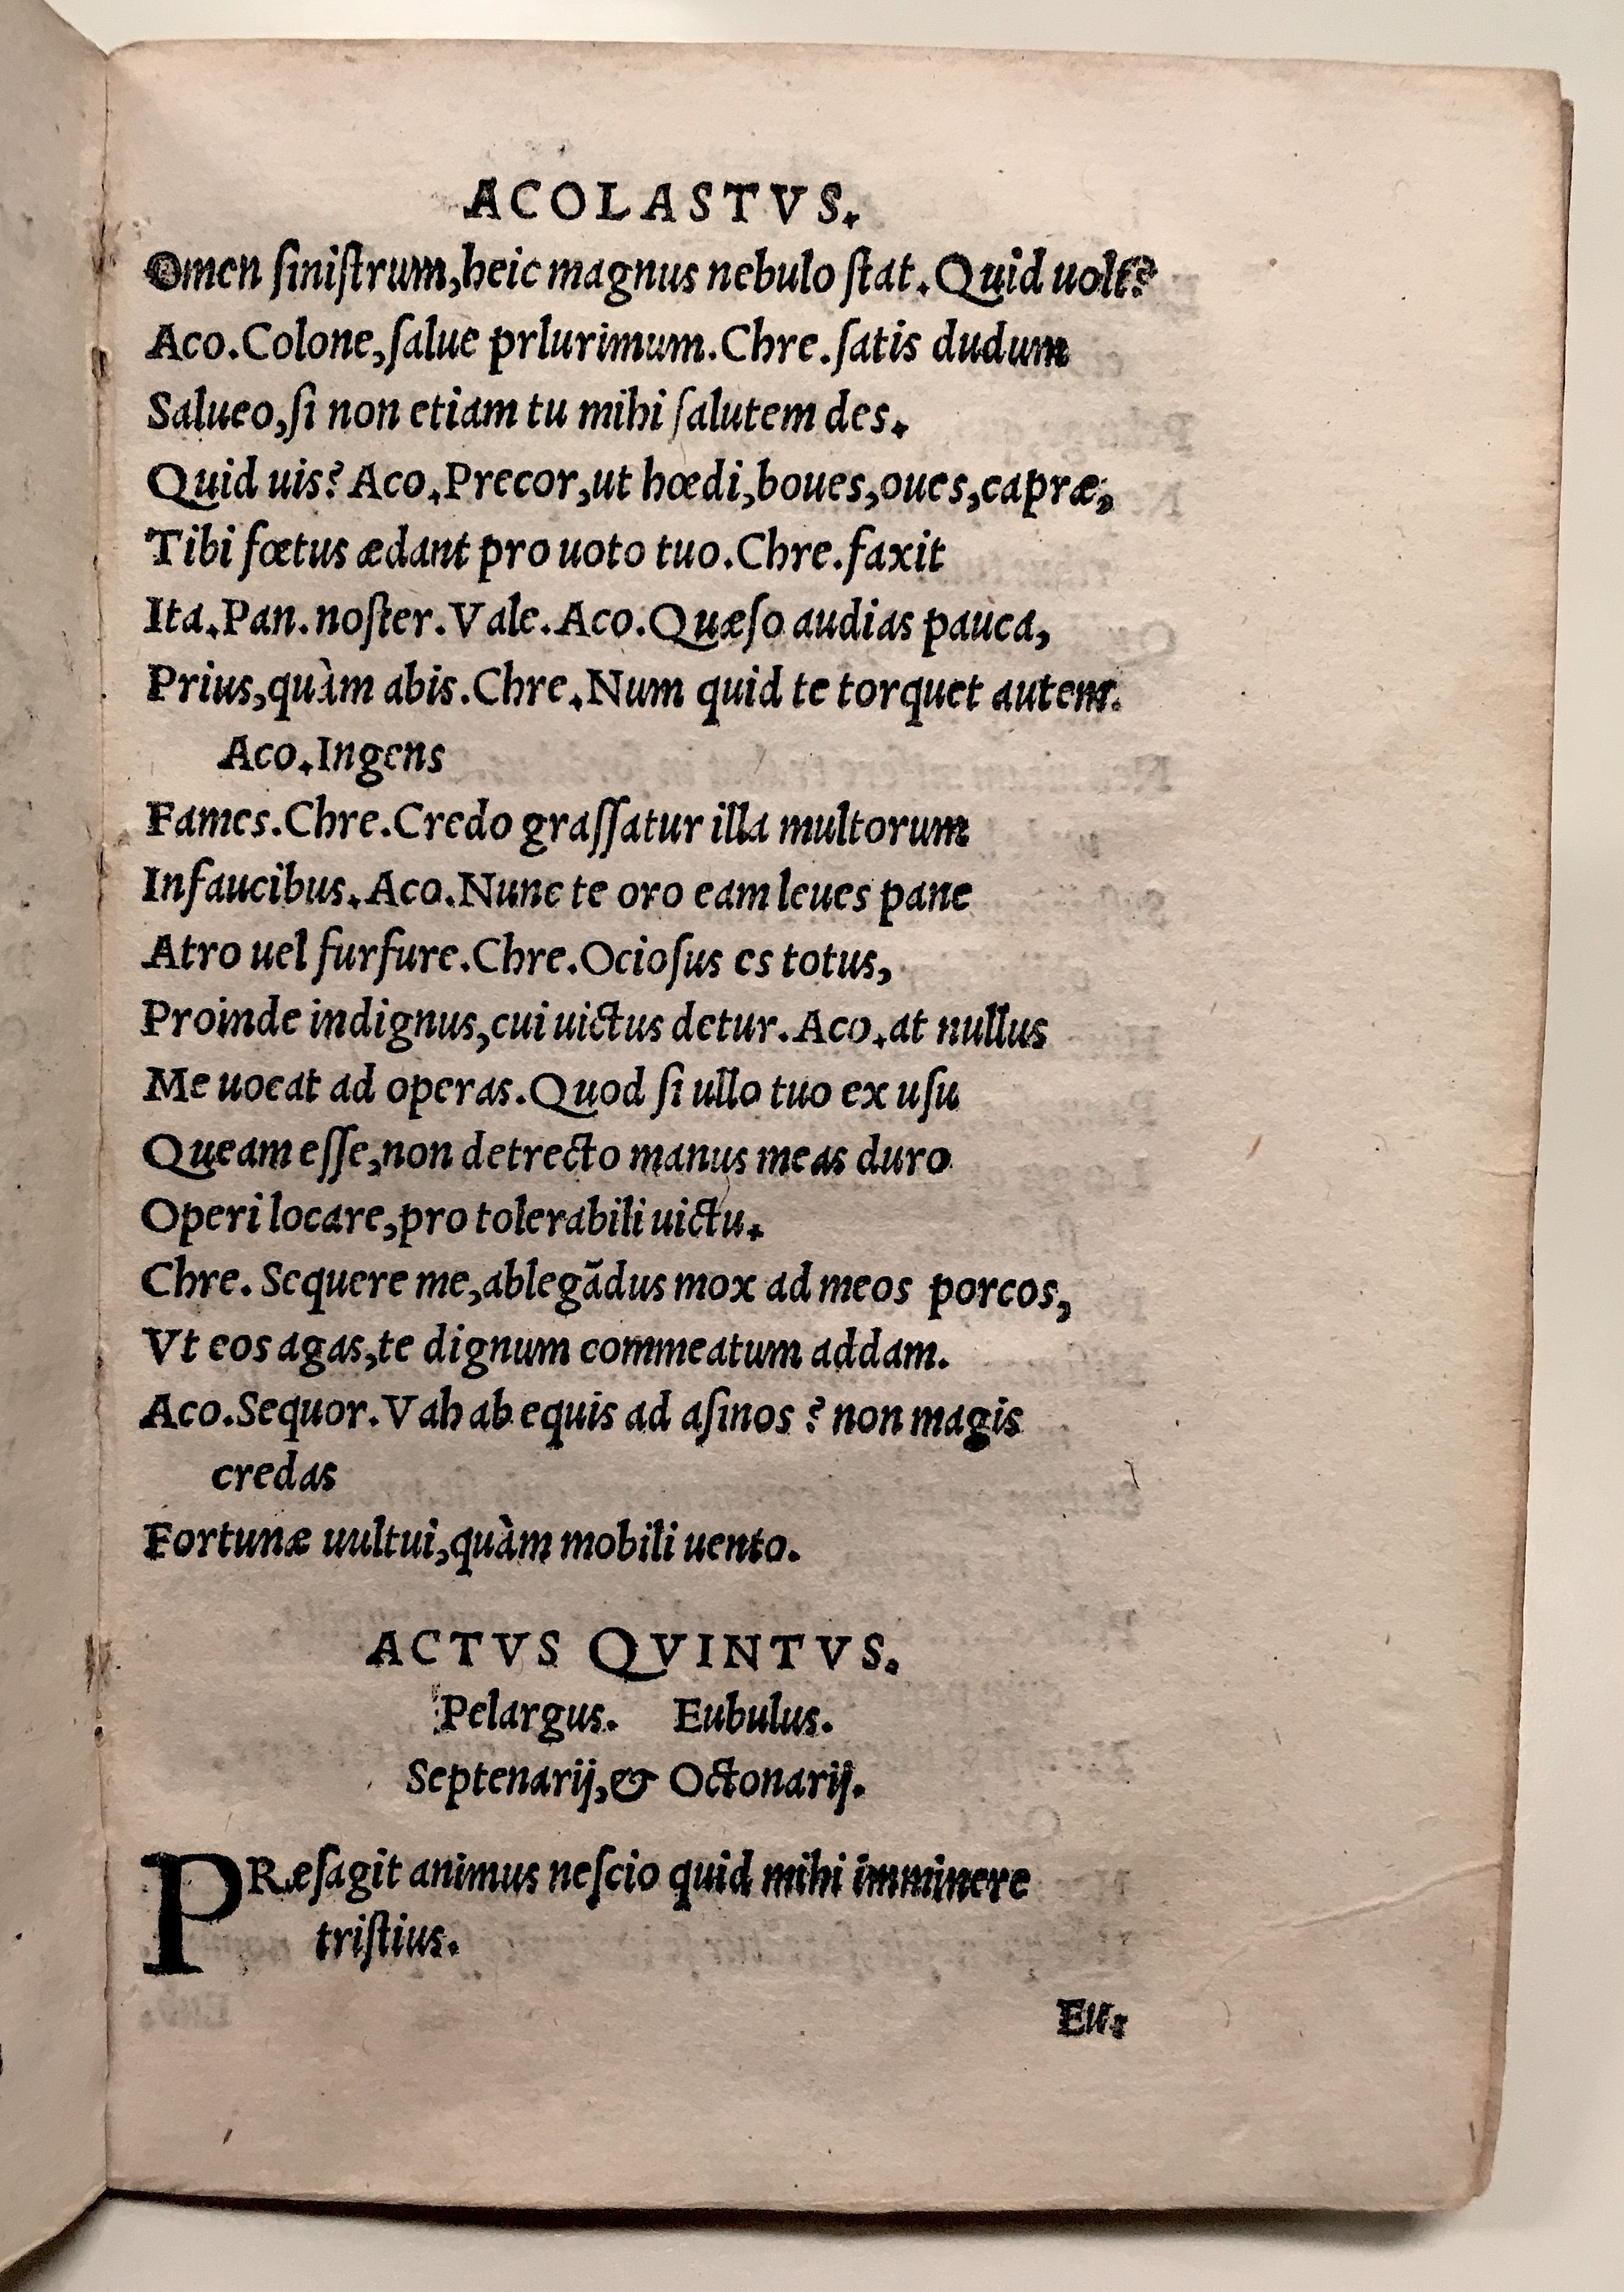 ACOLASTVS.
Omen ſiniſtrum,heic magnus nebulo ſtat.Quid uolt?
Aco.Colone,ſalue prlurimum.Chre.ſatis dudum
Salueo,ſi non etiam tu mihi ſalutem des.
Quid uis? Aco.Precor,ut hœdi,boues,oues,capræ,
Tibi fœtus ædant pro uoto tuo.Chre.faxit
Ita.Pan.noſter.Vale.Aco.Quæſo audias pauca,
Prius,quàm abis.Chre.Num quid te torquet autem.
Aco.Ingens
Fames.Chre.Credo graſſatur illa multorum
Infaucibus.Aco.Nunc te oro eam leues pane
Atro uel furfure.Chre.Ocioſus es totus,
Proinde indignus,cui uictus detur.Aco.at nullus
Me uocat ad operas.Quod ſi ullo tuo ex uſu
Queam eſſe,non detrecto manus meas duro
Operi locare,pro tolerabili uictu.
Chre. Sequere me,ablegādus mox ad meos porcos,
Vt eos agas,te dignum commeatum addam.
Aco.Sequor.Vah ab equis ad aſinos ? non magis
credas
Fortunæ uultui,quàm mobili uento.
ACTVS QVINTVS.
Pelargus. Eubulus.
Septenarij,& Octonarij.
PRæſagit animus neſcio quid mihi imminere
triſtius.
Eu.